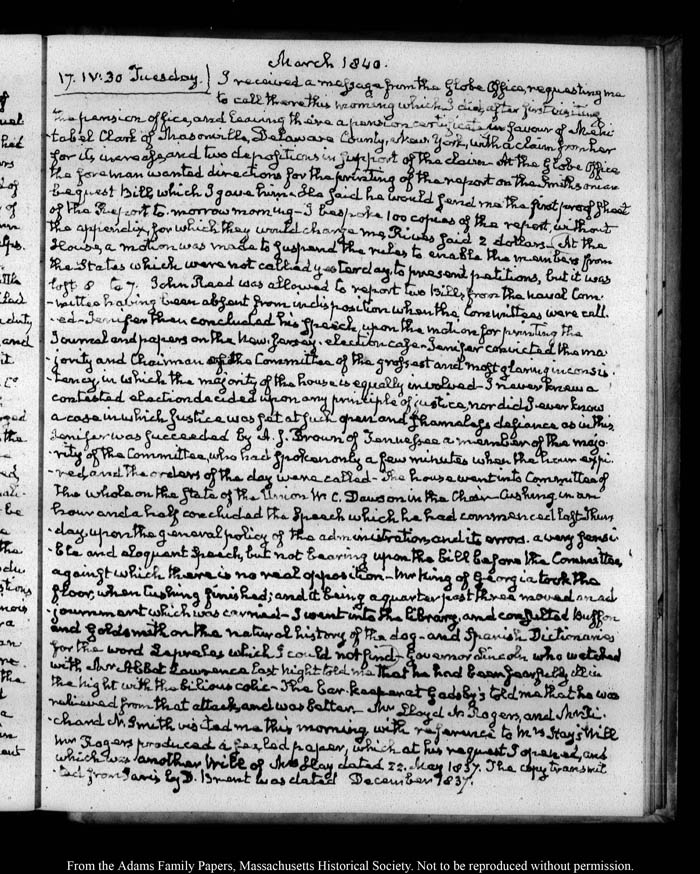 March 1840.
17. IV:30 Tuesday. I received a message from the Globe Office, requesting me
to call there this morning which I did, after first visiting
the pension office, and leaving there a pension certificate in favour of Mehi-
tabel Clark of Masonville, Delaware County, New York, with a claim from her
for its increase, and two depositions in support of the claim. At the Globe Office
the foreman wanted directions for the printing of the report on the Smithsonian
bequest Bill, which I gave him. He said he would send me the first proof sheet
of the Report to-morrow morning- I bespoke 100 copies of the report, without
the appendix, for which they would charge me, Rives said 2 dollars- At the
House, a motion was made to suspend the rules to enable the members from
the States which were not called yesterday, to present petitions, but it was
lost 8 to 7. John Reed was allowed to report two Bills from the naval Com-
-mittee having been absent from indisposition when the Committees were call-
-ed- Jenifer then concluded his Speech upon the motion for printing the
Journal and papers on the New-Jersey election case- Jenifer convicted the ma-
-jority and Chairman of the Committee of the grossest and most glaring inconsis-
-tency, in which the majority of the house is equally involved- I never knew a
contested election decided upon any principle of justice, nor did I ever know
a case in which Justice was set at such open and shameless defiance as in this.
Jenifer was succeeded by A. V. Brown of Tennessee a member of the majo-
-rity of the Committee, who had spoken only a few minutes when the hour expi-
-red and the orders of the day were called- The house went into Committee of
the whole on the State of the Union W C. Dawson in the Chair- Cushing in an
hour and a half concluded the Speech which he had commenced last Thurs-
-day, upon the general policy of the administration, and its errors. a very sensi-
-ble and eloquent Speech, but not bearing upon the bill before the Committee,
against which there is no real opposition- Mr King of Georgia took the
floor, when Cushing finished; and it being a quarter past three moved an ad-
-journment which was carried- I went into the library, and consulted Buffon
and Goldsmith on the natural history of the dog- and Spanish Dictionaries
for the word Lepreles which I could not find- Governor Lincoln who
with Mr Abbot Lawrence last Night told me that he had been fearfully ill in
the night with the bilious colic- The bar-keeper at Gadsby's told me that he was
relieved from that attack, and was better- Mr Lloyd N. Rogers, and Mr Ri-
-chard N. Smith visited me this morning with reference to Mrs Hay's Will
Mr Rogers produced a sealed paper, which at his request I opened, and
which was another Will of Mrs Hay dated 22. May 1837. The copy transmit-
-ted from Paris by D. Brent was dated December 1837.
From the Adams Family Papers, Massachusetts Historical Society. Not to be reproduced without permission.